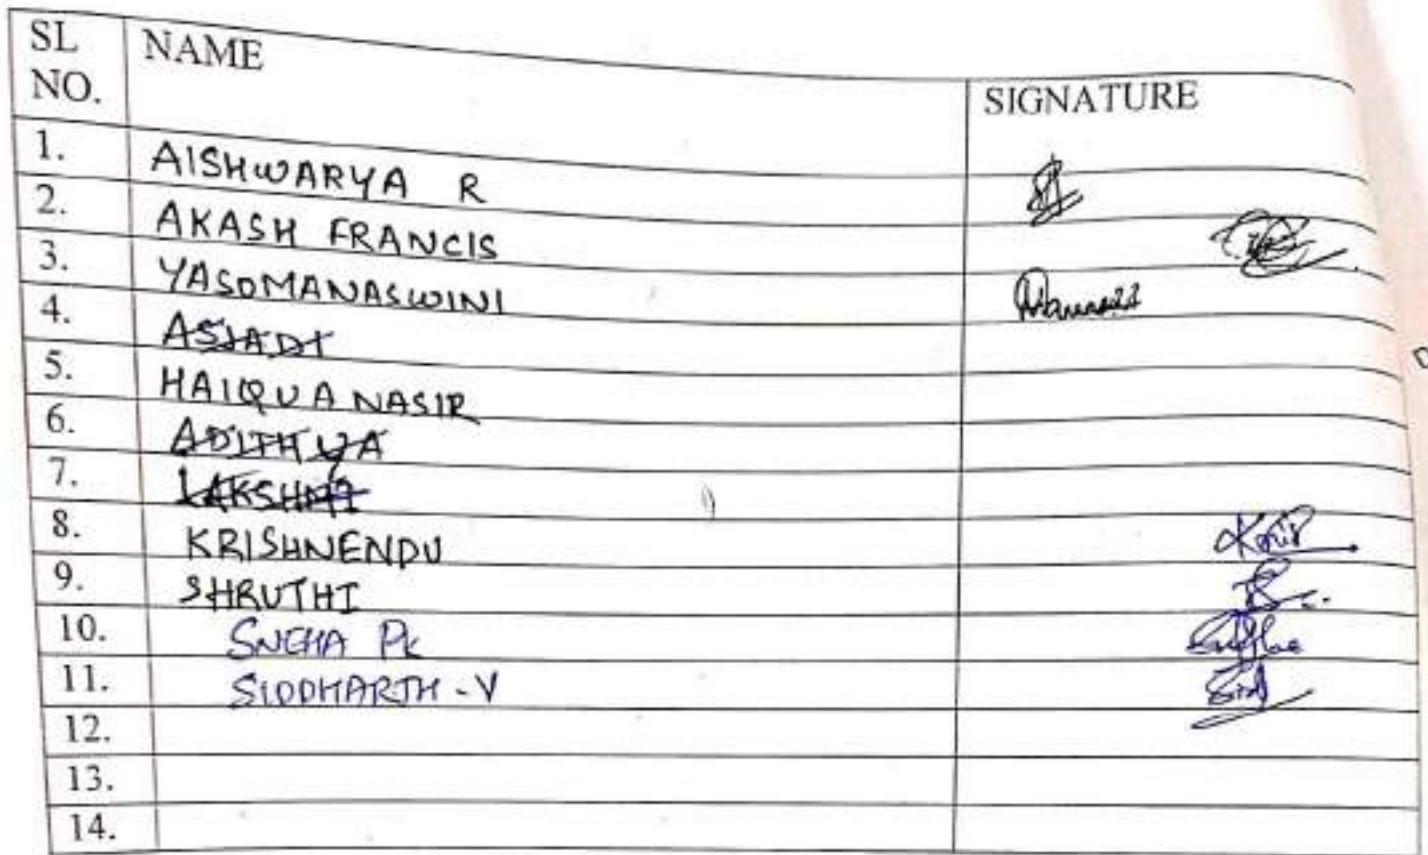 SL NO. NAME SIGNATURE
1. AISHWARYA R
2. AKASH FRANCIS
3. YASOMANASWINI
4. ASJADI
5. HAIQUA NASIR
6. ADITHYA
7. LAKSHMI
8. KRISHNENDU
9. SHRUTHI
10. SNEHA PK
11. SIDDHARTH - V
12.
13.
14.